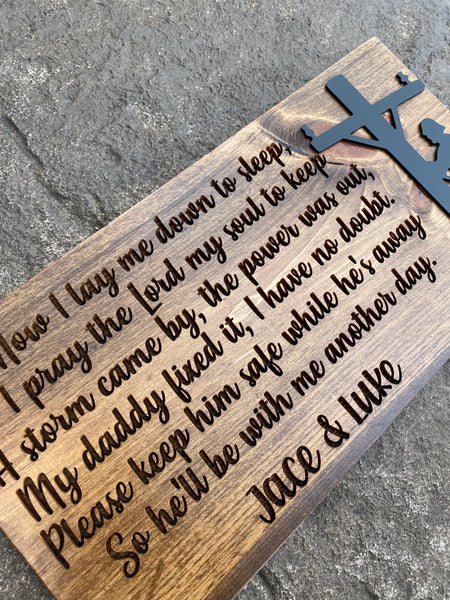 Now I lay me down to sleep,
I pray the Lord my soul to keep
A storm came by, the power was out,
My daddy fixed it, I have no doubt.
Please keep him safe while he's away
So he'll be with me another day.
Jace & Luke